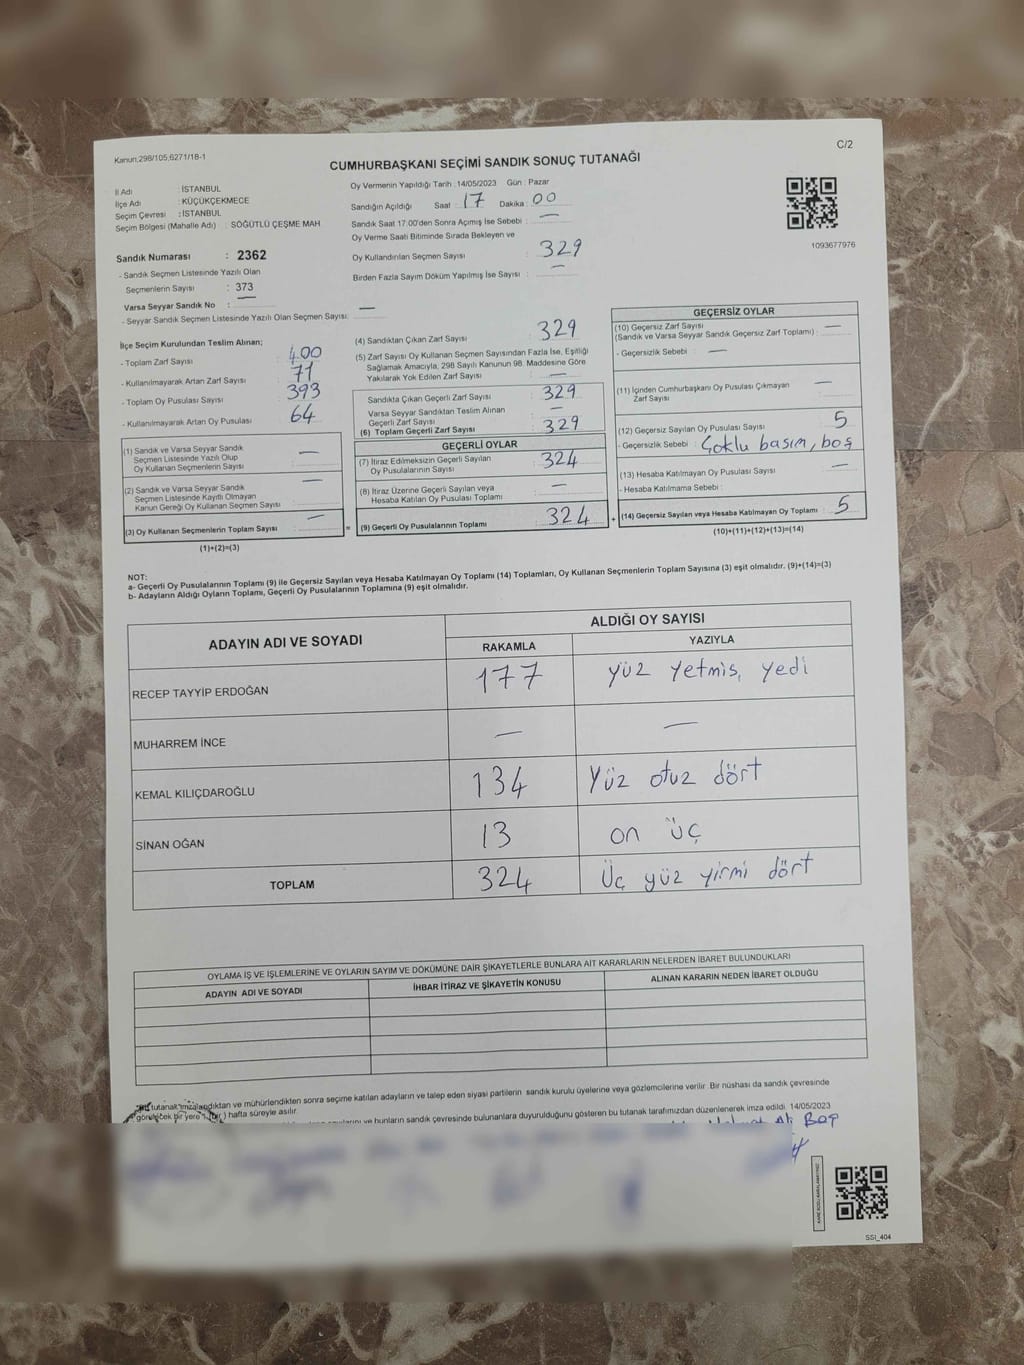 Kanun,298/105,6271/18-1
C/2
CUMHURBAŞKANI SEÇİMİ SANDIK SONUÇ TUTANAĞI
İl Adı : İSTANBUL
İlçe Adı : KÜÇÜKÇEKMECE
Seçim Çevresi : İSTANBUL
Seçim Bölgesi (Mahalle Adı) : SÖĞÜTLÜ ÇEŞME MAH
Sandık Numarası : 2362
- Sandık Seçmen Listesinde Yazılı Olan
Seçmenlerin Sayısı : 373
Varsa Seyyar Sandık No : —
- Seyyar Sandık Seçmen Listesinde Yazılı Olan Seçmen Sayısı: —
Oy Vermenin Yapıldığı Tarih :14/05/2023 Gün : Pazar
Sandığın Açıldığı Saat : 17 Dakika : 00
Sandık Saat 17:00'den Sonra Açımış İse Sebebi : —
Oy Verme Saati Bitiminde Sırada Bekleyen ve
Oy Kullandırılan Seçmen Sayısı : 329
Birden Fazla Sayım Döküm Yapılmış İse Sayısı : —
1093677976
İlçe Seçim Kurulundan Teslim Alınan;
- Toplam Zarf Sayısı : 400
- Kullanılmayarak Artan Zarf Sayısı : 71
- Toplam Oy Pusulası Sayısı : 393
- Kullanılmayarak Artan Oy Pusulası : 64
(1) Sandık ve Varsa Seyyar Sandık
Seçmen Listesinde Yazılı Olup
Oy Kullanan Seçmenlerin Sayısı —
(2) Sandık ve Varsa Seyyar Sandık
Seçmen Listesinde Kayıtlı Olmayan
Kanun Gereği Oy Kullanan Seçmen Sayısı —
(3) Oy Kullanan Seçmenlerin Toplam Sayısı —
(1)+(2)=(3)
(4) Sandıktan Çıkan Zarf Sayısı : 329
(5) Zarf Sayısı Oy Kullanan Seçmen Sayısından Fazla İse, Eşitliği
Sağlamak Amacıyla, 298 Sayılı Kanunun 98. Maddesine Göre
Yakılarak Yok Edilen Zarf Sayısı : —
Sandıkta Çıkan Geçerli Zarf Sayısı : 329
Varsa Seyyar Sandıktan Teslim Alınan
Geçerli Zarf Sayısı : —
(6) Toplam Geçerli Zarf Sayısı : 329
GEÇERLİ OYLAR
(7) İtiraz Edilmeksizin Geçerli Sayılan
Oy Pusulalarının Sayısı : 324
(8) İtiraz Üzerine Geçerli Sayılan veya
Hesaba Katılan Oy Pusulası Toplamı : —
= (9) Geçerli Oy Pusulalarının Toplamı : 324
GEÇERSİZ OYLAR
(10) Geçersiz Zarf Sayısı
(Sandık ve Varsa Seyyar Sandık Geçersiz Zarf Toplamı) : —
- Geçersizlik Sebebi : —
(11) İçinden Cumhurbaşkanı Oy Pusulası Çıkmayan
Zarf Sayısı : —
(12) Geçersiz Sayılan Oy Pusulası Sayısı : 5
- Geçersizlik Sebebi : Çoklu basım, boş
(13) Hesaba Katılmayan Oy Pusulası Sayısı : —
- Hesaba Katılmama Sebebi :
+ (14) Geçersiz Sayılan veya Hesaba Katılmayan Oy Toplamı : 5
(10)+(11)+(12)+(13)=(14)
NOT:
a- Geçerli Oy Pusulalarının Toplamı (9) ile Geçersiz Sayılan veya Hesaba Katılmayan Oy Toplamı (14) Toplamları, Oy Kullanan Seçmenlerin Toplam Sayısına (3) eşit olmalıdır. (9)+(14)=(3)
b- Adayların Aldığı Oyların Toplamı, Geçerli Oy Pusulalarının Toplamına (9) eşit olmalıdır.
ADAYIN ADI VE SOYADI
ALDIĞI OY SAYISI
RAKAMLA YAZIYLA
RECEP TAYYİP ERDOĞAN 177 yüz yetmis, yedi
MUHARREM İNCE — —
KEMAL KILIÇDAROĞLU 134 Yüz otuz dört
SİNAN OĞAN 13 on üç
TOPLAM 324 Üç yüz yirmi dört
OYLAMA İŞ VE İŞLEMLERİNE VE OYLARIN SAYIM VE DÖKÜMÜNE DAİR ŞİKAYETLERLE BUNLARA AİT KARARLARIN NELERDEN İBARET BULUNDUKLARI
ADAYIN ADI VE SOYADI İHBAR İTİRAZ VE ŞİKAYETİN KONUSU ALINAN KARARIN NEDEN İBARET OLDUĞU
tutanak imzalandıktan ve mühürlendikten sonra seçime katılan adayların ve talep eden siyasi partilerin sandık kurulu üyelerine veya gözlemcilerine verilir. Bir nüshası da sandık çevresinde
görülecek bir yere hafta süreyle asılır.
ve bunların sandık çevresinde bulunanlara duyurulduğunu gösteren bu tutanak tarafımızdan düzenlenerek imza edildi. 14/05/2023
SSİ_404